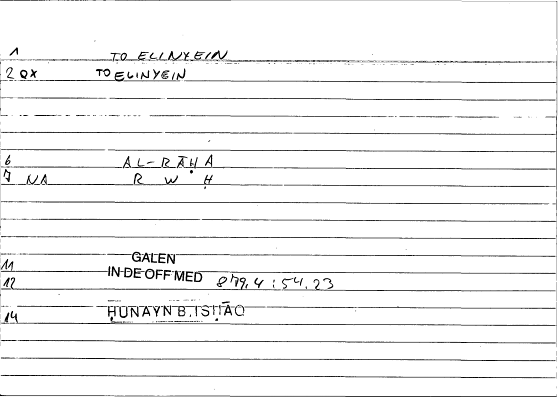 1 TO ELINYEIN
2 QX TO ELINYEIN
6 AL-RĀḤA
7 NA R W Ḥ
11 GALEN
12 IN DE OFF MED 879,4 : 54,23
14 ḤUNAYN B. ISḤĀQ